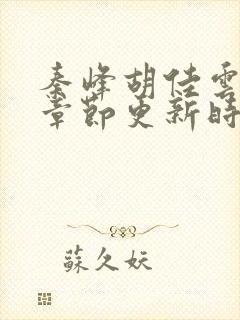 秦峰胡佳雲
章節更新時
蘇久妖